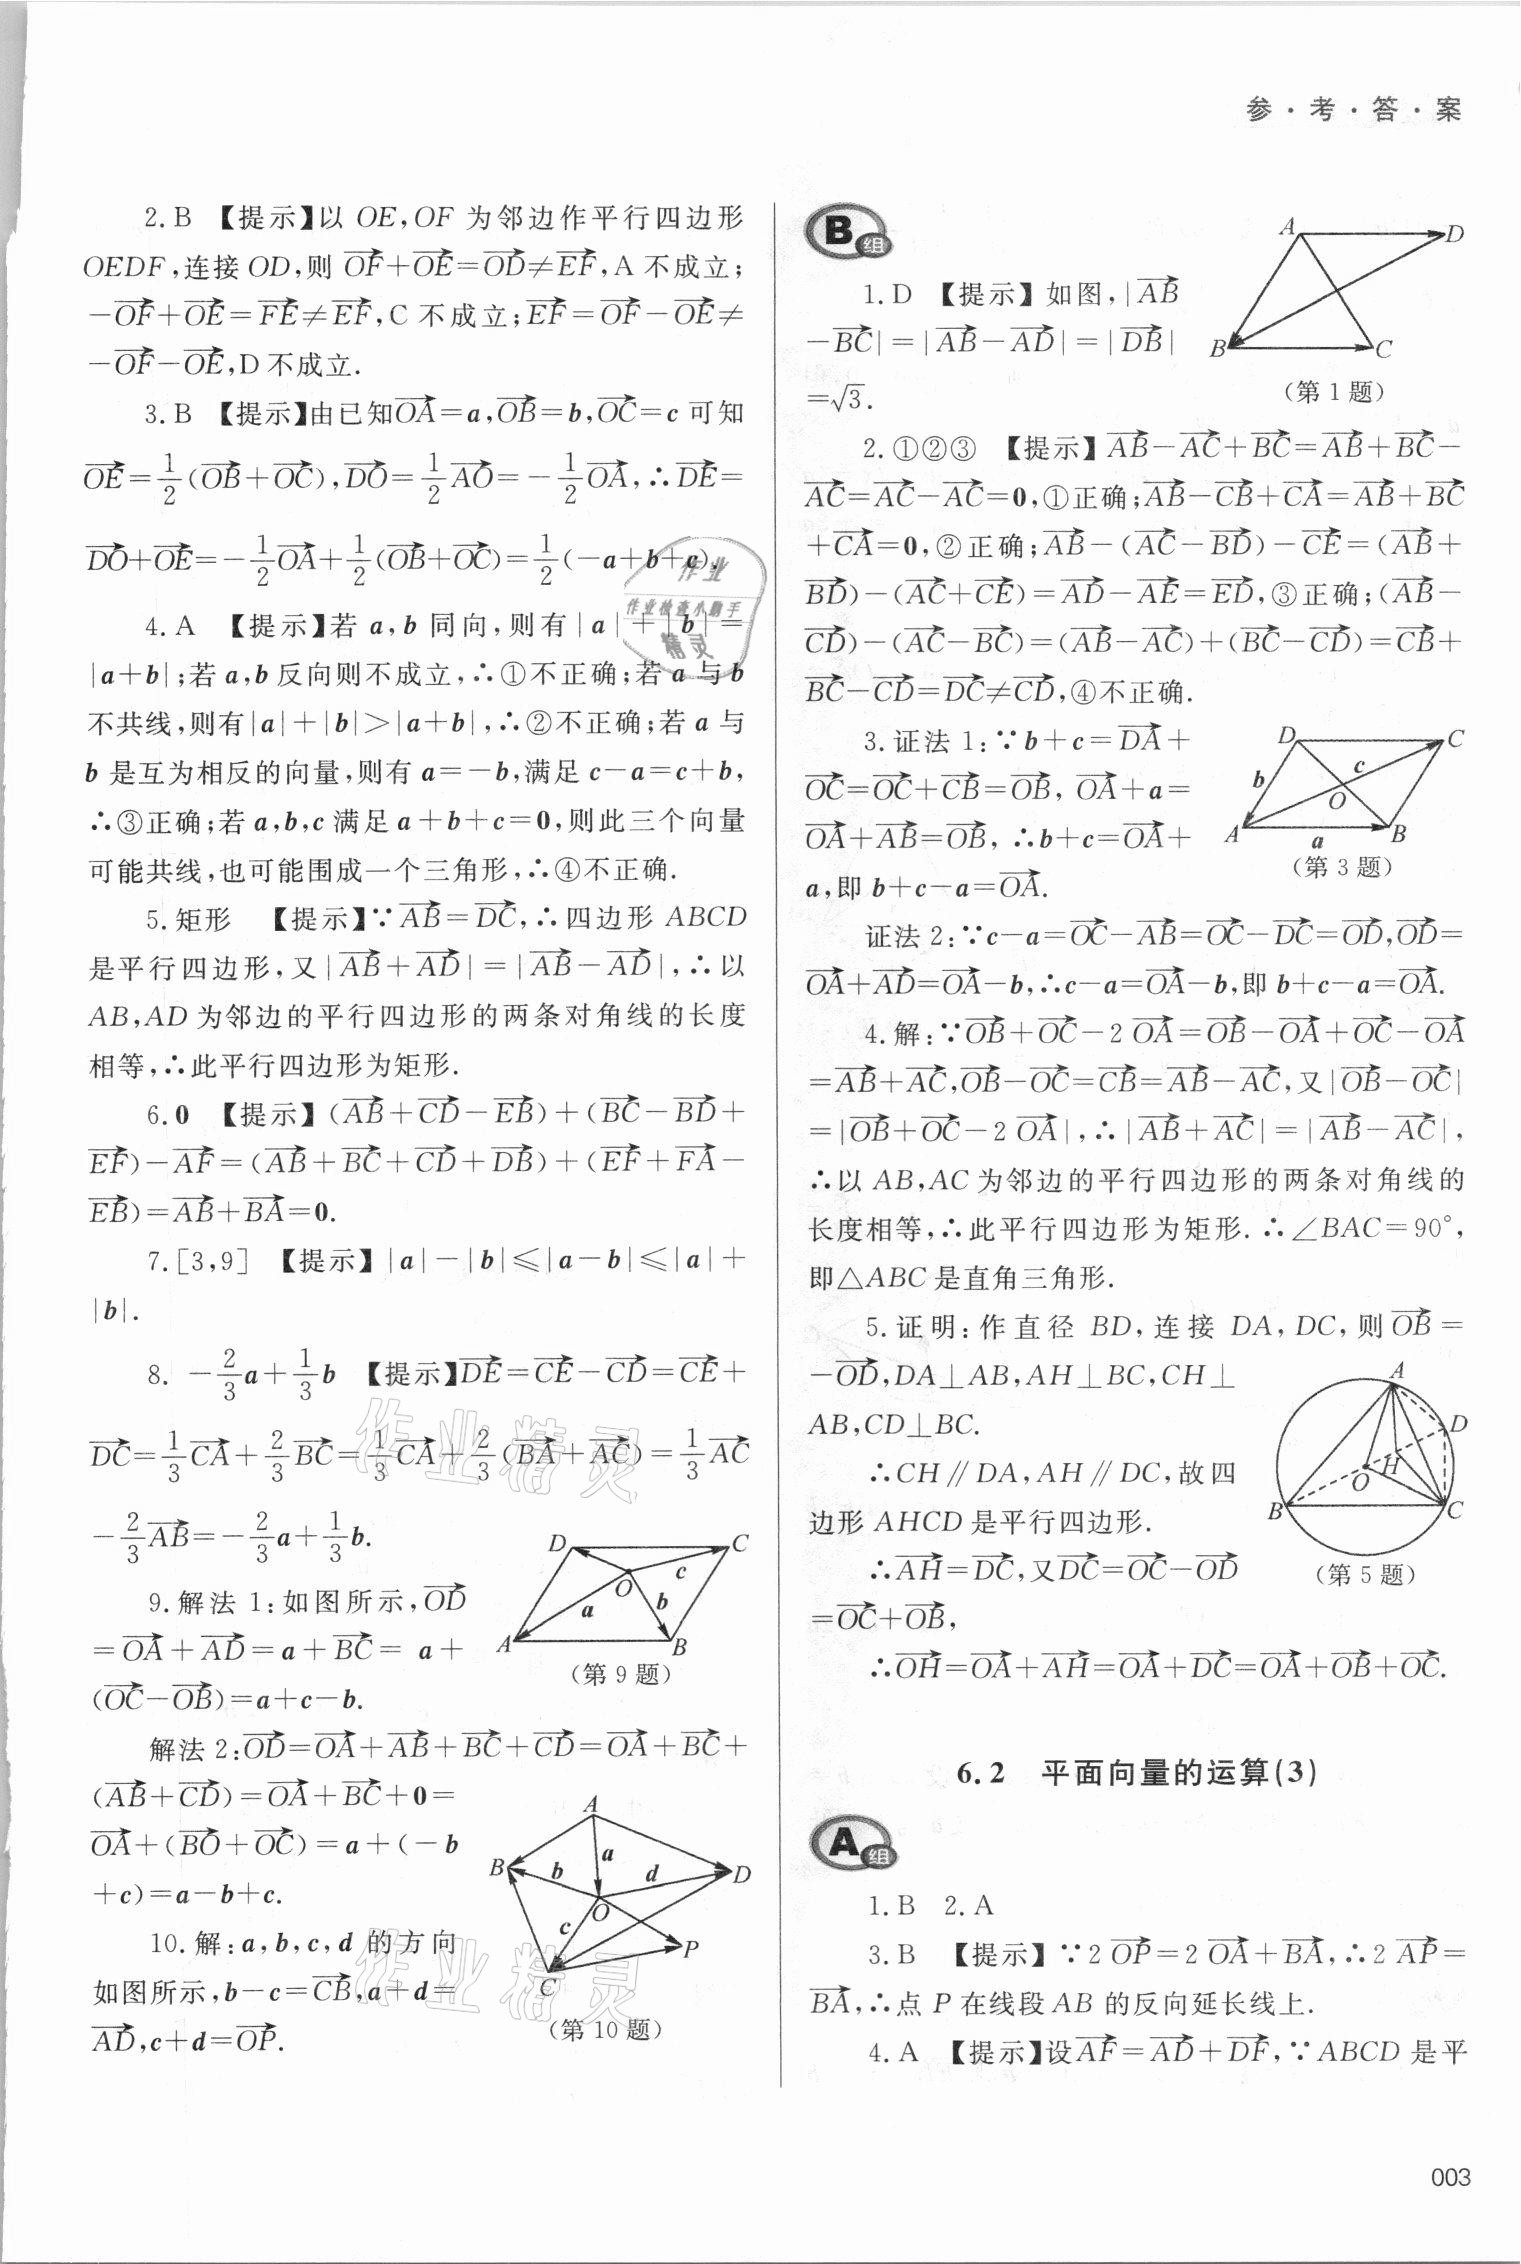 参·考·答·案
2.B 【提示】以 OE,OF 为邻边作平行四边形
OEDF,连接 OD,则 $\overrightarrow{OF}+\overrightarrow{OE}=\overrightarrow{OD}\neq\overrightarrow{EF}$,A 不成立;
$-\overrightarrow{OF}+\overrightarrow{OE}=\overrightarrow{FE}\neq\overrightarrow{EF}$,C 不成立;$\overrightarrow{EF}=\overrightarrow{OF}-\overrightarrow{OE}\neq$
$-\overrightarrow{OF}-\overrightarrow{OE}$,D 不成立.
3.B 【提示】由已知$\overrightarrow{OA}=a$,$\overrightarrow{OB}=b$,$\overrightarrow{OC}=c$ 可知
$\overrightarrow{OE}=\frac{1}{2}(\overrightarrow{OB}+\overrightarrow{OC})$,$\overrightarrow{DO}=\frac{1}{2}\overrightarrow{AO}=-\frac{1}{2}\overrightarrow{OA}$,∴$\overrightarrow{DE}=$
$\overrightarrow{DO}+\overrightarrow{OE}=-\frac{1}{2}\overrightarrow{OA}+\frac{1}{2}(\overrightarrow{OB}+\overrightarrow{OC})=\frac{1}{2}(-a+b+c)$.
4.A 【提示】若 a,b 同向,则有|a|+|b|=
|a+b|;若 a,b 反向则不成立,∴①不正确;若 a 与 b
不共线,则有|a|+|b|>|a+b|,∴②不正确;若 a 与
b 是互为相反的向量,则有 a=-b,满足 c-a=c+b,
∴③正确;若 a,b,c 满足 a+b+c=0,则此三个向量
可能共线,也可能围成一个三角形,∴④不正确.
5.矩形 【提示】∵$\overrightarrow{AB}=\overrightarrow{DC}$,∴四边形 ABCD
是平行四边形,又|$\overrightarrow{AB}+\overrightarrow{AD}$|=|$\overrightarrow{AB}-\overrightarrow{AD}$|,∴以
AB,AD 为邻边的平行四边形的两条对角线的长度
相等,∴此平行四边形为矩形.
6.0 【提示】$(\overrightarrow{AB}+\overrightarrow{CD}-\overrightarrow{EB})+(\overrightarrow{BC}-\overrightarrow{BD}+$
$\overrightarrow{EF})-\overrightarrow{AF}=(\overrightarrow{AB}+\overrightarrow{BC}+\overrightarrow{CD}+\overrightarrow{DB})+(\overrightarrow{EF}+\overrightarrow{FA}-$
$\overrightarrow{EB})=\overrightarrow{AB}+\overrightarrow{BA}=0$.
7.[3,9] 【提示】|a|-|b|≤|a-b|≤|a|+
|b|.
8. $-\frac{2}{3}a+\frac{1}{3}b$ 【提示】$\overrightarrow{DE}=\overrightarrow{CE}-\overrightarrow{CD}=\overrightarrow{CE}+$
$\overrightarrow{DC}=\frac{1}{3}\overrightarrow{CA}+\frac{2}{3}\overrightarrow{BC}=\frac{1}{3}\overrightarrow{CA}+\frac{2}{3}(\overrightarrow{BA}+\overrightarrow{AC})=\frac{1}{3}\overrightarrow{AC}$
$-\frac{2}{3}\overrightarrow{AB}=-\frac{2}{3}a+\frac{1}{3}b$.
D C O c a b A B
9.解法 1:如图所示,$\overrightarrow{OD}$
$=\overrightarrow{OA}+\overrightarrow{AD}=a+\overrightarrow{BC}=a+$
(第 9 题)
$(\overrightarrow{OC}-\overrightarrow{OB})=a+c-b$.
解法 2:$\overrightarrow{OD}=\overrightarrow{OA}+\overrightarrow{AB}+\overrightarrow{BC}+\overrightarrow{CD}=\overrightarrow{OA}+\overrightarrow{BC}+$
$(\overrightarrow{AB}+\overrightarrow{CD})=\overrightarrow{OA}+\overrightarrow{BC}+0=$
$\overrightarrow{OA}+(\overrightarrow{BO}+\overrightarrow{OC})=a+(-b$
$+c)=a-b+c$.
A B a b d D O c P C
10.解:a,b,c,d 的方向
如图所示,$b-c=\overrightarrow{CB}$,$a+d=$
$\overrightarrow{AD}$,$c+d=\overrightarrow{OP}$.
(第 10 题)
B组
A D B C
1.D 【提示】如图,|$\overrightarrow{AB}$
$-\overrightarrow{BC}|=|\overrightarrow{AB}-\overrightarrow{AD}|=|\overrightarrow{DB}|$
$=\sqrt{3}$.
(第 1 题)
2.①②③ 【提示】$\overrightarrow{AB}-\overrightarrow{AC}+\overrightarrow{BC}=\overrightarrow{AB}+\overrightarrow{BC}-$
$\overrightarrow{AC}=\overrightarrow{AC}-\overrightarrow{AC}=0$,①正确;$\overrightarrow{AB}-\overrightarrow{CB}+\overrightarrow{CA}=\overrightarrow{AB}+\overrightarrow{BC}$
$+\overrightarrow{CA}=0$,②正确;$\overrightarrow{AB}-(\overrightarrow{AC}-\overrightarrow{BD})-\overrightarrow{CE}=(\overrightarrow{AB}+$
$\overrightarrow{BD})-(\overrightarrow{AC}+\overrightarrow{CE})=\overrightarrow{AD}-\overrightarrow{AE}=\overrightarrow{ED}$,③正确;$(\overrightarrow{AB}-$
$\overrightarrow{CD})-(\overrightarrow{AC}-\overrightarrow{BC})=(\overrightarrow{AB}-\overrightarrow{AC})+(\overrightarrow{BC}-\overrightarrow{CD})=\overrightarrow{CB}+$
$\overrightarrow{BC}-\overrightarrow{CD}=\overrightarrow{DC}\neq\overrightarrow{CD}$,④不正确.
D C b c O A a B
3.证法 1:∵$b+c=\overrightarrow{DA}+$
$\overrightarrow{OC}=\overrightarrow{OC}+\overrightarrow{CB}=\overrightarrow{OB}$, $\overrightarrow{OA}+a=$
$\overrightarrow{OA}+\overrightarrow{AB}=\overrightarrow{OB}$, ∴$b+c=\overrightarrow{OA}+$
(第 3 题)
a,即 $b+c-a=\overrightarrow{OA}$.
证法 2:∵$c-a=\overrightarrow{OC}-\overrightarrow{AB}=\overrightarrow{OC}-\overrightarrow{DC}=\overrightarrow{OD}$,$\overrightarrow{OD}=$
$\overrightarrow{OA}+\overrightarrow{AD}=\overrightarrow{OA}-b$,∴$c-a=\overrightarrow{OA}-b$,即 $b+c-a=\overrightarrow{OA}$.
4.解:∵$\overrightarrow{OB}+\overrightarrow{OC}-2\overrightarrow{OA}=\overrightarrow{OB}-\overrightarrow{OA}+\overrightarrow{OC}-\overrightarrow{OA}$
$=\overrightarrow{AB}+\overrightarrow{AC}$,$\overrightarrow{OB}-\overrightarrow{OC}=\overrightarrow{CB}=\overrightarrow{AB}-\overrightarrow{AC}$,又|$\overrightarrow{OB}-\overrightarrow{OC}$|
$=|\overrightarrow{OB}+\overrightarrow{OC}-2\overrightarrow{OA}|$,∴$|\overrightarrow{AB}+\overrightarrow{AC}|=|\overrightarrow{AB}-\overrightarrow{AC}|$,
∴以 AB,AC 为邻边的平行四边形的两条对角线的
长度相等,∴此平行四边形为矩形.∴∠BAC=90°,
即△ABC 是直角三角形.
5.证明:作直径 BD,连接 DA,DC,则$\overrightarrow{OB}=$
$-\overrightarrow{OD}$,DA⊥AB,AH⊥BC,CH⊥
AB,CD⊥BC.
A D H O B C
∴CH∥DA,AH∥DC,故四
边形 AHCD 是平行四边形.
∴$\overrightarrow{AH}=\overrightarrow{DC}$,又$\overrightarrow{DC}=\overrightarrow{OC}-\overrightarrow{OD}$
(第 5 题)
$=\overrightarrow{OC}+\overrightarrow{OB}$,
∴$\overrightarrow{OH}=\overrightarrow{OA}+\overrightarrow{AH}=\overrightarrow{OA}+\overrightarrow{DC}=\overrightarrow{OA}+\overrightarrow{OB}+\overrightarrow{OC}$.
6.2 平面向量的运算(3)
A组
1.B 2.A
3.B 【提示】∵$2\overrightarrow{OP}=2\overrightarrow{OA}+\overrightarrow{BA}$,∴$2\overrightarrow{AP}=$
$\overrightarrow{BA}$,∴点 P 在线段 AB 的反向延长线上.
4.A 【提示】设$\overrightarrow{AF}=\overrightarrow{AD}+\overrightarrow{DF}$,∵ABCD 是平
003
作业
作业检查小助手
精灵
作业精灵
作业精灵